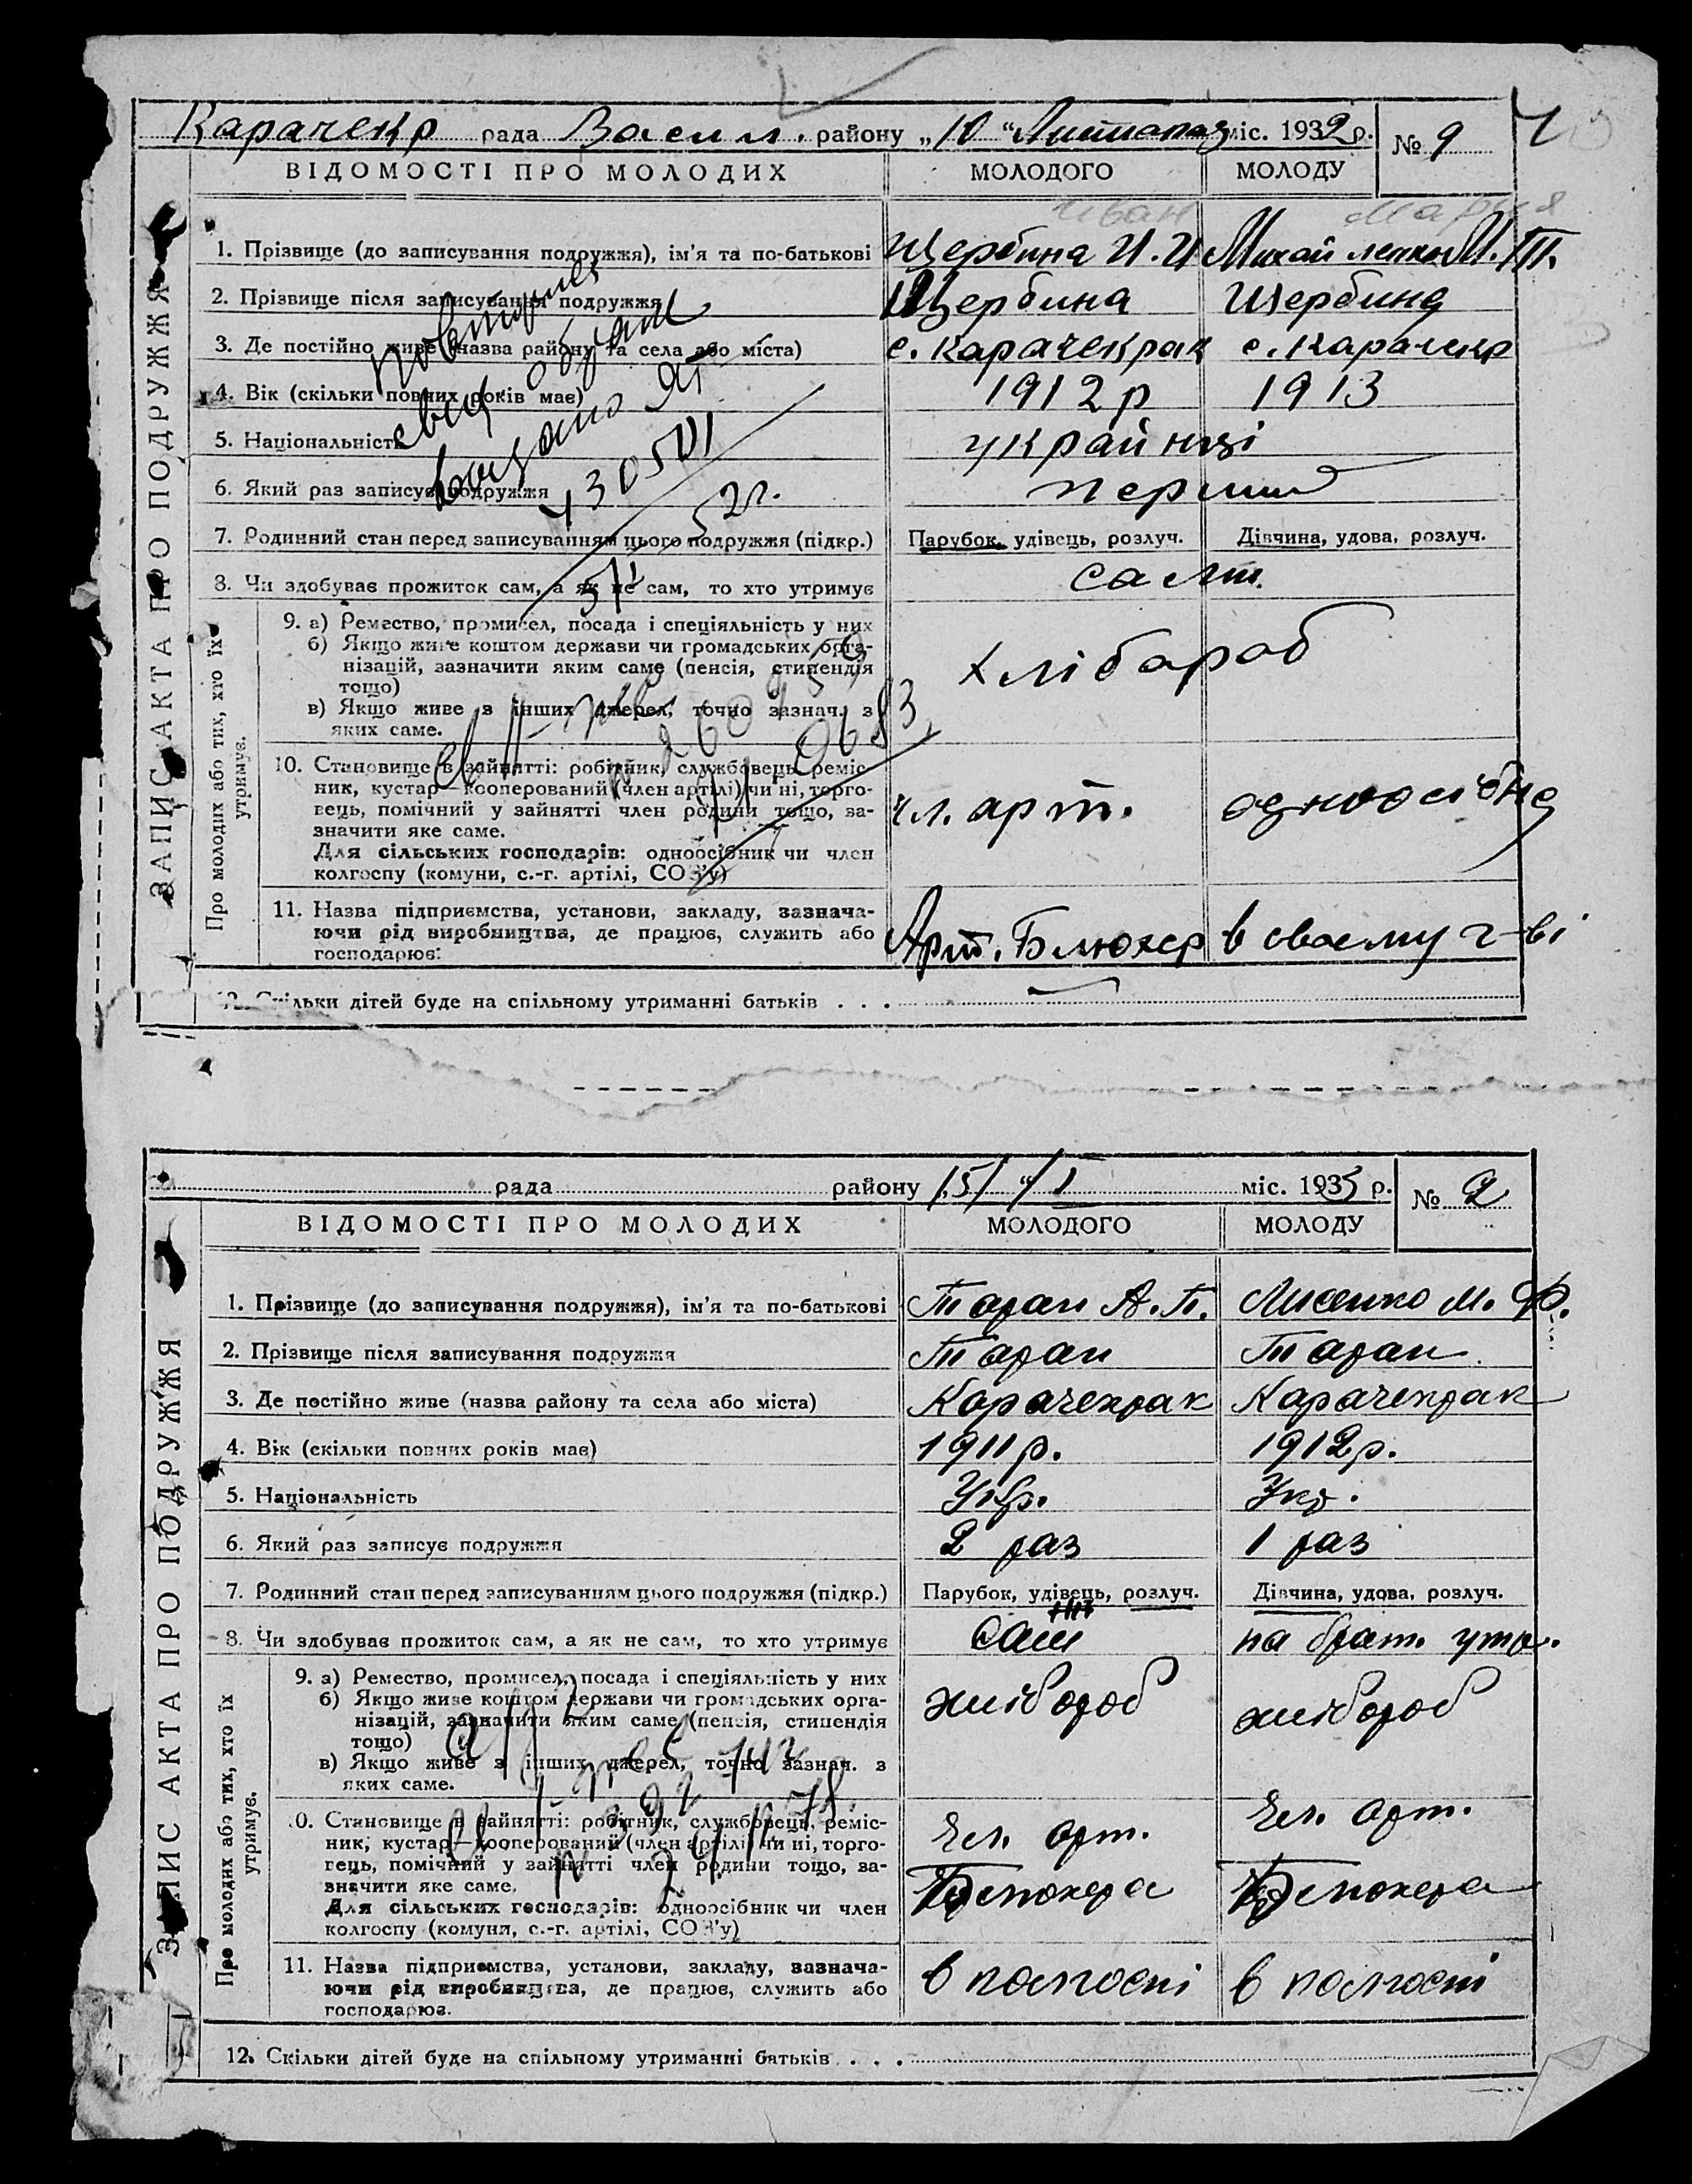 Карачекр рада Васил. району „10“ Листопад міс. 1932 р. № 9
ВІДОМОСТІ ПРО МОЛОДИХ МОЛОДОГО МОЛОДУ
Иван Мария
ЗАПИС АКТА ПРО ПОДРУЖЖЯ
1. Прізвище (до записування подружжя), ім'я та по-батькові Щербина И.И Михайленко М.П.
2. Прізвище після записування подружжя Щербина Щербина
3. Де постійно живе (назва району та села або міста) с. Карачекрак с. Карачекр
4. Вік (скільки повних років має) 1912 р 1913
5. Національність украйнці
6. Який раз записує подружжя перший
7. Родинний стан перед записуванням цього подружжя (підкр.) Парубок, удівець, розлуч. Дівчина, удова, розлуч.
8. Чи здобуває прожиток сам, а як не сам, то хто утримує сам.
Про молодих або тих, хто їх утримує.
9. а) Ремество, промисел, посада і спеціяльність у них
б) Якщо живе коштом держави чи громадських орга-
нізацій, зазначити яким саме (пенсія, стипендія
тощо)
в) Якщо живе з інших джерел, точно зазнач. з
яких саме.
хлібароб
10. Становище в зайнятті: робітник, службовець, реміс-
ник, кустар—кооперований (член артілі) чи ні, торго-
вець, помічний у зайнятті член родини тощо, за-
значити яке саме.
Для сільських господарів: одноосібник чи член
колгоспу (комуни, с.-г. артілі, СОЗ'у)
чл. арт. одноосібна
11. Назва підприємства, установи, закладу, зазнача-
ючи рід виробництва, де працює, служить або
господарює:
Арт. Блюхер в своему г-ві
12. Скільки дітей буде на спільному утриманні батьків . . .
рада району „15“ I міс. 1935 р. № 2
ВІДОМОСТІ ПРО МОЛОДИХ МОЛОДОГО МОЛОДУ
ЗАПИС АКТА ПРО ПОДРУЖЖЯ
1. Прізвище (до записування подружжя), ім'я та по-батькові Таран А.П. Лисенко М. Ф.
2. Прізвище після записування подружжя Таран Таран
3. Де постійно живе (назва району та села або міста) Карачекрак Карачекрак
4. Вік (скільки повних років має) 1911 р. 1912 р.
5. Національність Укр. Укр.
6. Який раз записує подружжя 2 раз 1 раз
7. Родинний стан перед записуванням цього подружжя (підкр.) Парубок, удівець, розлуч. Дівчина, удова, розлуч.
8. Чи здобуває прожиток сам, а як не сам, то хто утримує Сам на брат. утр.
Про молодих або тих, хто їх утримує.
9. а) Ремество, промисел, посада і спеціяльність у них
б) Якщо живе коштом держави чи громадських орга-
нізацій, зазначити яким саме (пенсія, стипендія
тощо)
в) Якщо живе з інших джерел, точно зазнач. з
яких саме.
хлібороб хлібороб
10. Становище в зайнятті: робітник, службовець, реміс-
ник, кустар—кооперований (член артілі) чи ні, торго-
вець, помічний у зайнятті член родини тощо, за-
значити яке саме.
Для сільських господарів: одноосібник чи член
колгоспу (комуни, с.-г. артілі, СОЗ'у)
Чл. арт. Чл. арт.
Блюхера Блюхера
11. Назва підприємства, установи, закладу, зазнача-
ючи рід виробництва, де працює, служить або
господарює.
в колгоспі в колгоспі
12. Скільки дітей буде на спільному утриманні батьків . . .